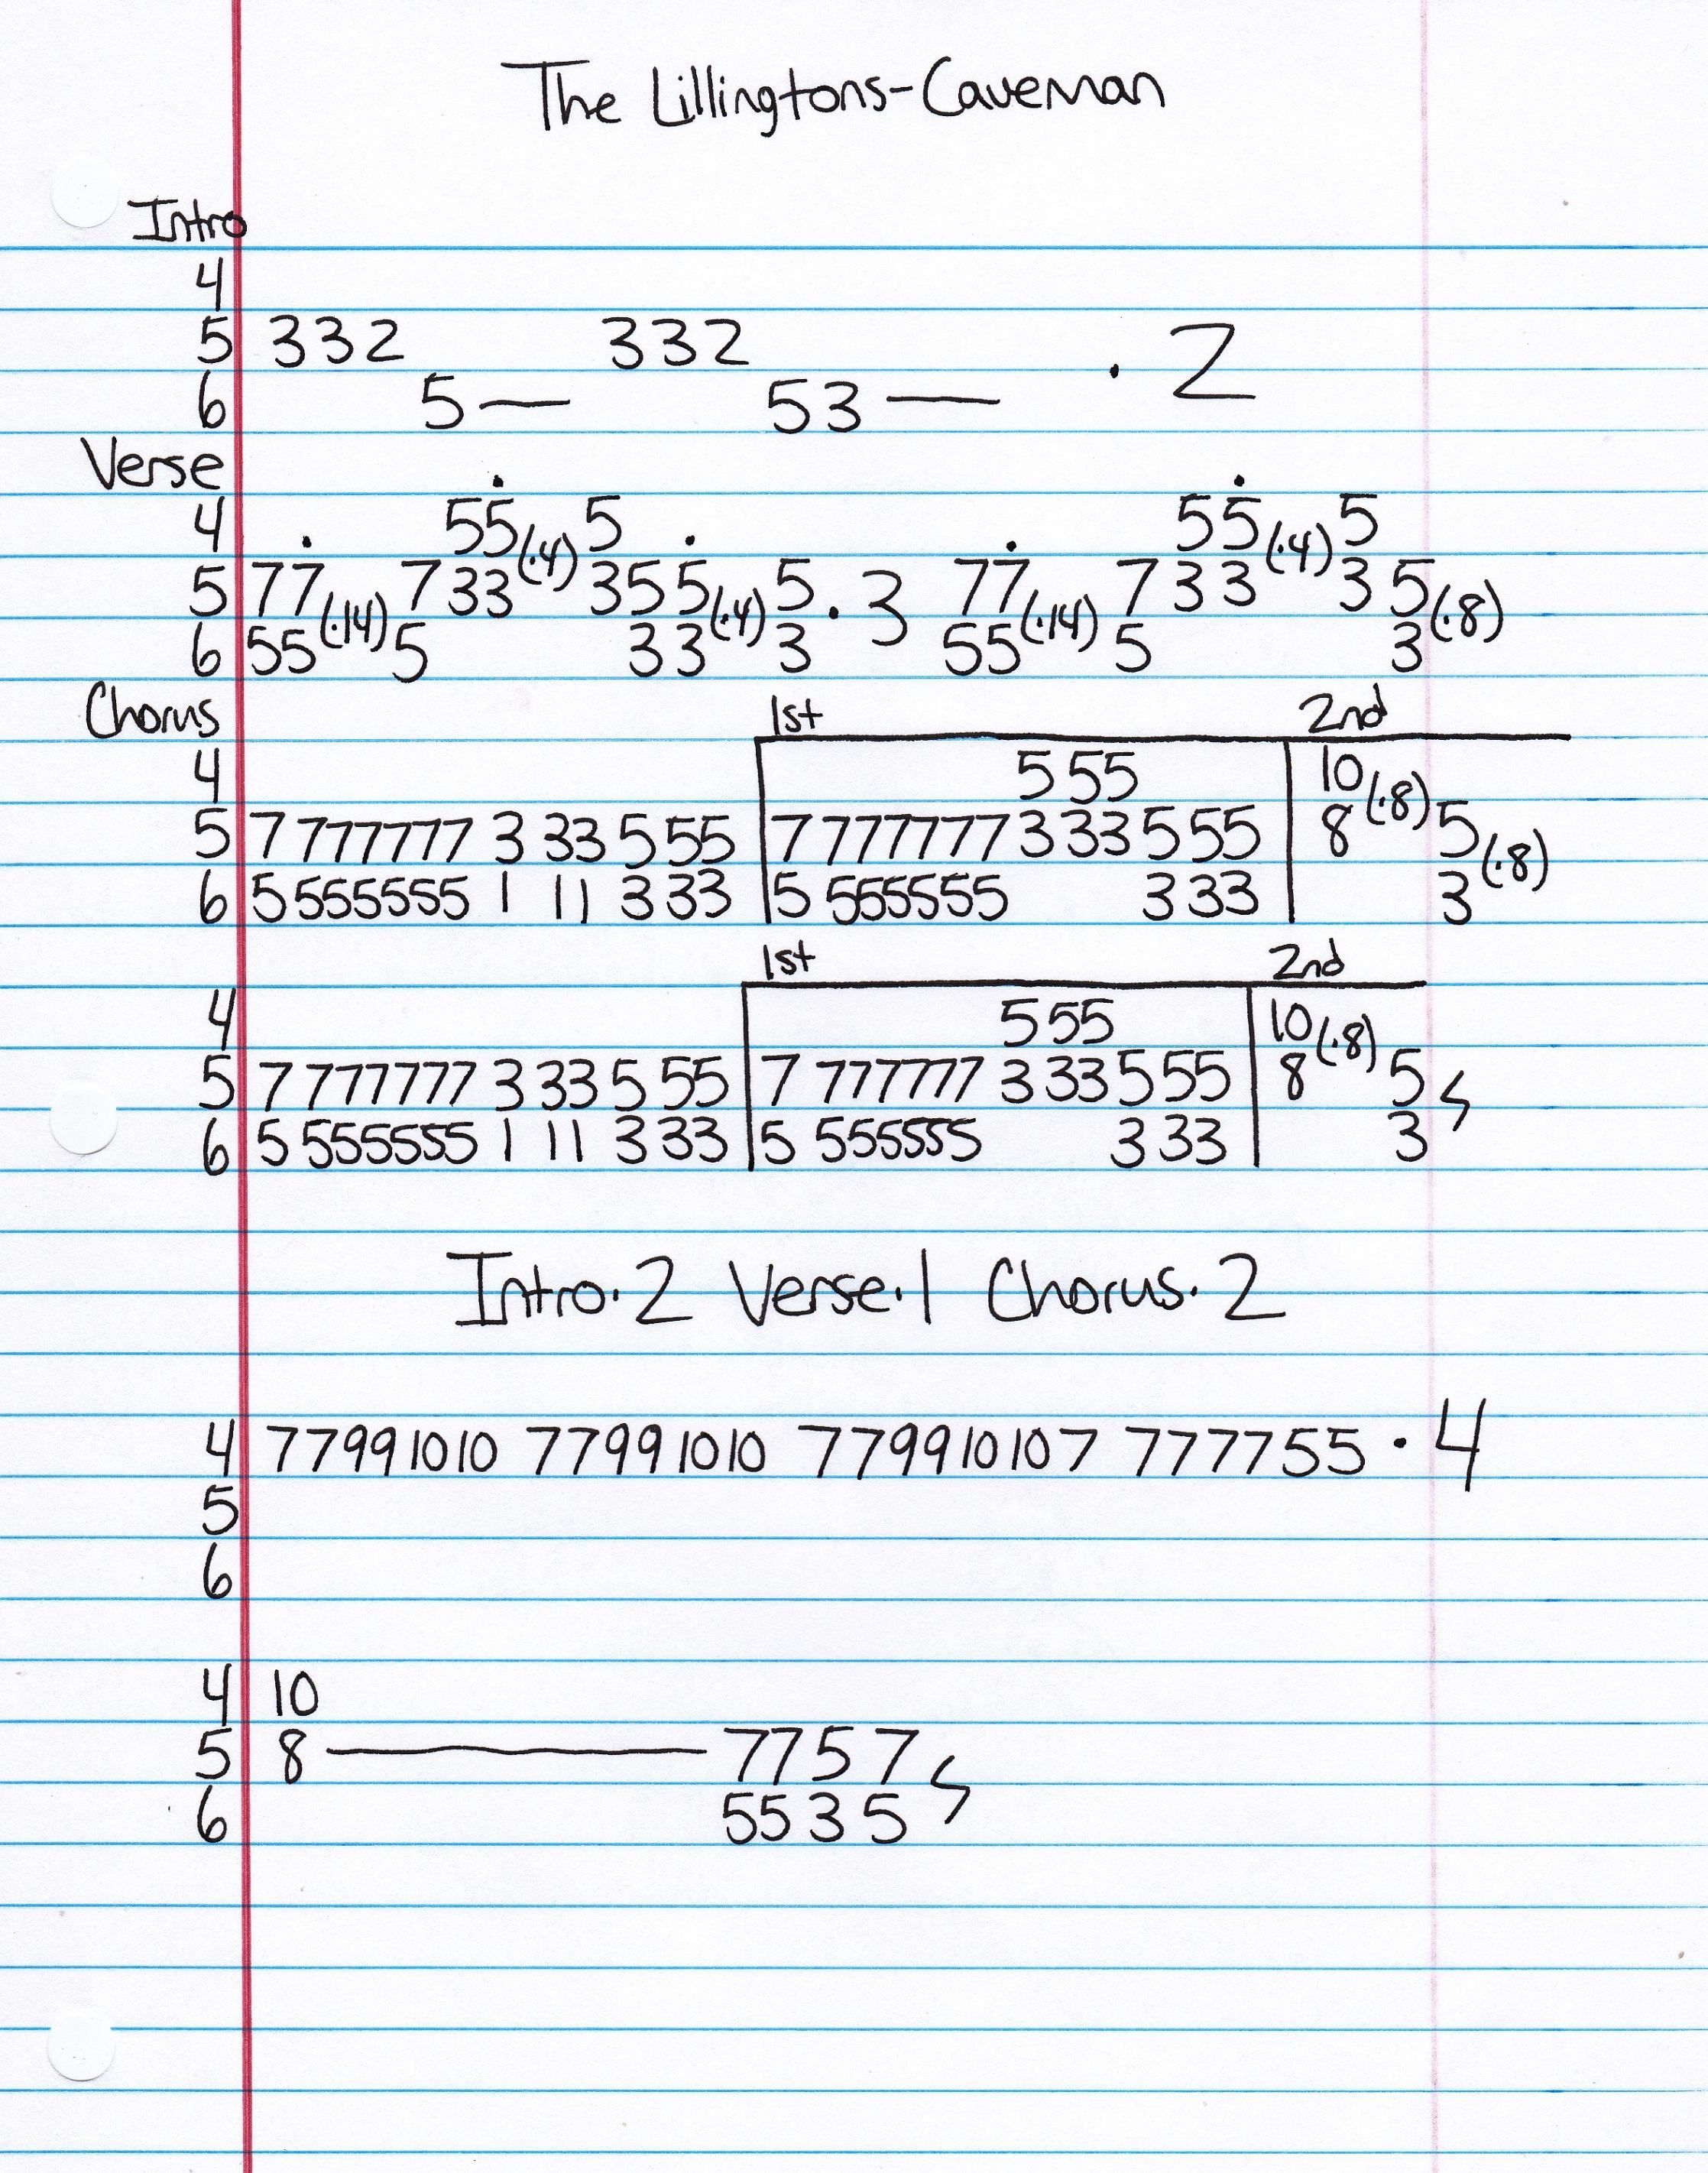 The Lillingtons-Caveman
Intro
4
5 332 332
6 5— 53— · 2
Verse
4 55 (·4) 5 55 (·4) 5
5 77 (·14) 7 33 355 (·4) 5 · 3 77 (·14) 7 33 3 5 (·8)
6 55 5 33 3 55 5 3
Chorus 1st 2nd
4 5 55 10 (·8)
5 7 777777 3 33 5 55 7 777777 3 33 5 55 8 5 (·8)
6 5 555555 1 11 3 33 5 555555 3 33 3
1st 2nd
4 5 55 10 (·8)
5 7 777777 3 33 5 55 7 777777 3 33 5 55 8 5
6 5 555555 1 11 3 33 5 555555 3 33 3
Intro·2 Verse·1 Chorus·2
4 77991010 77991010 779910107 777755 · 4
5
6
4 10
5 8 — 7757
6 5535